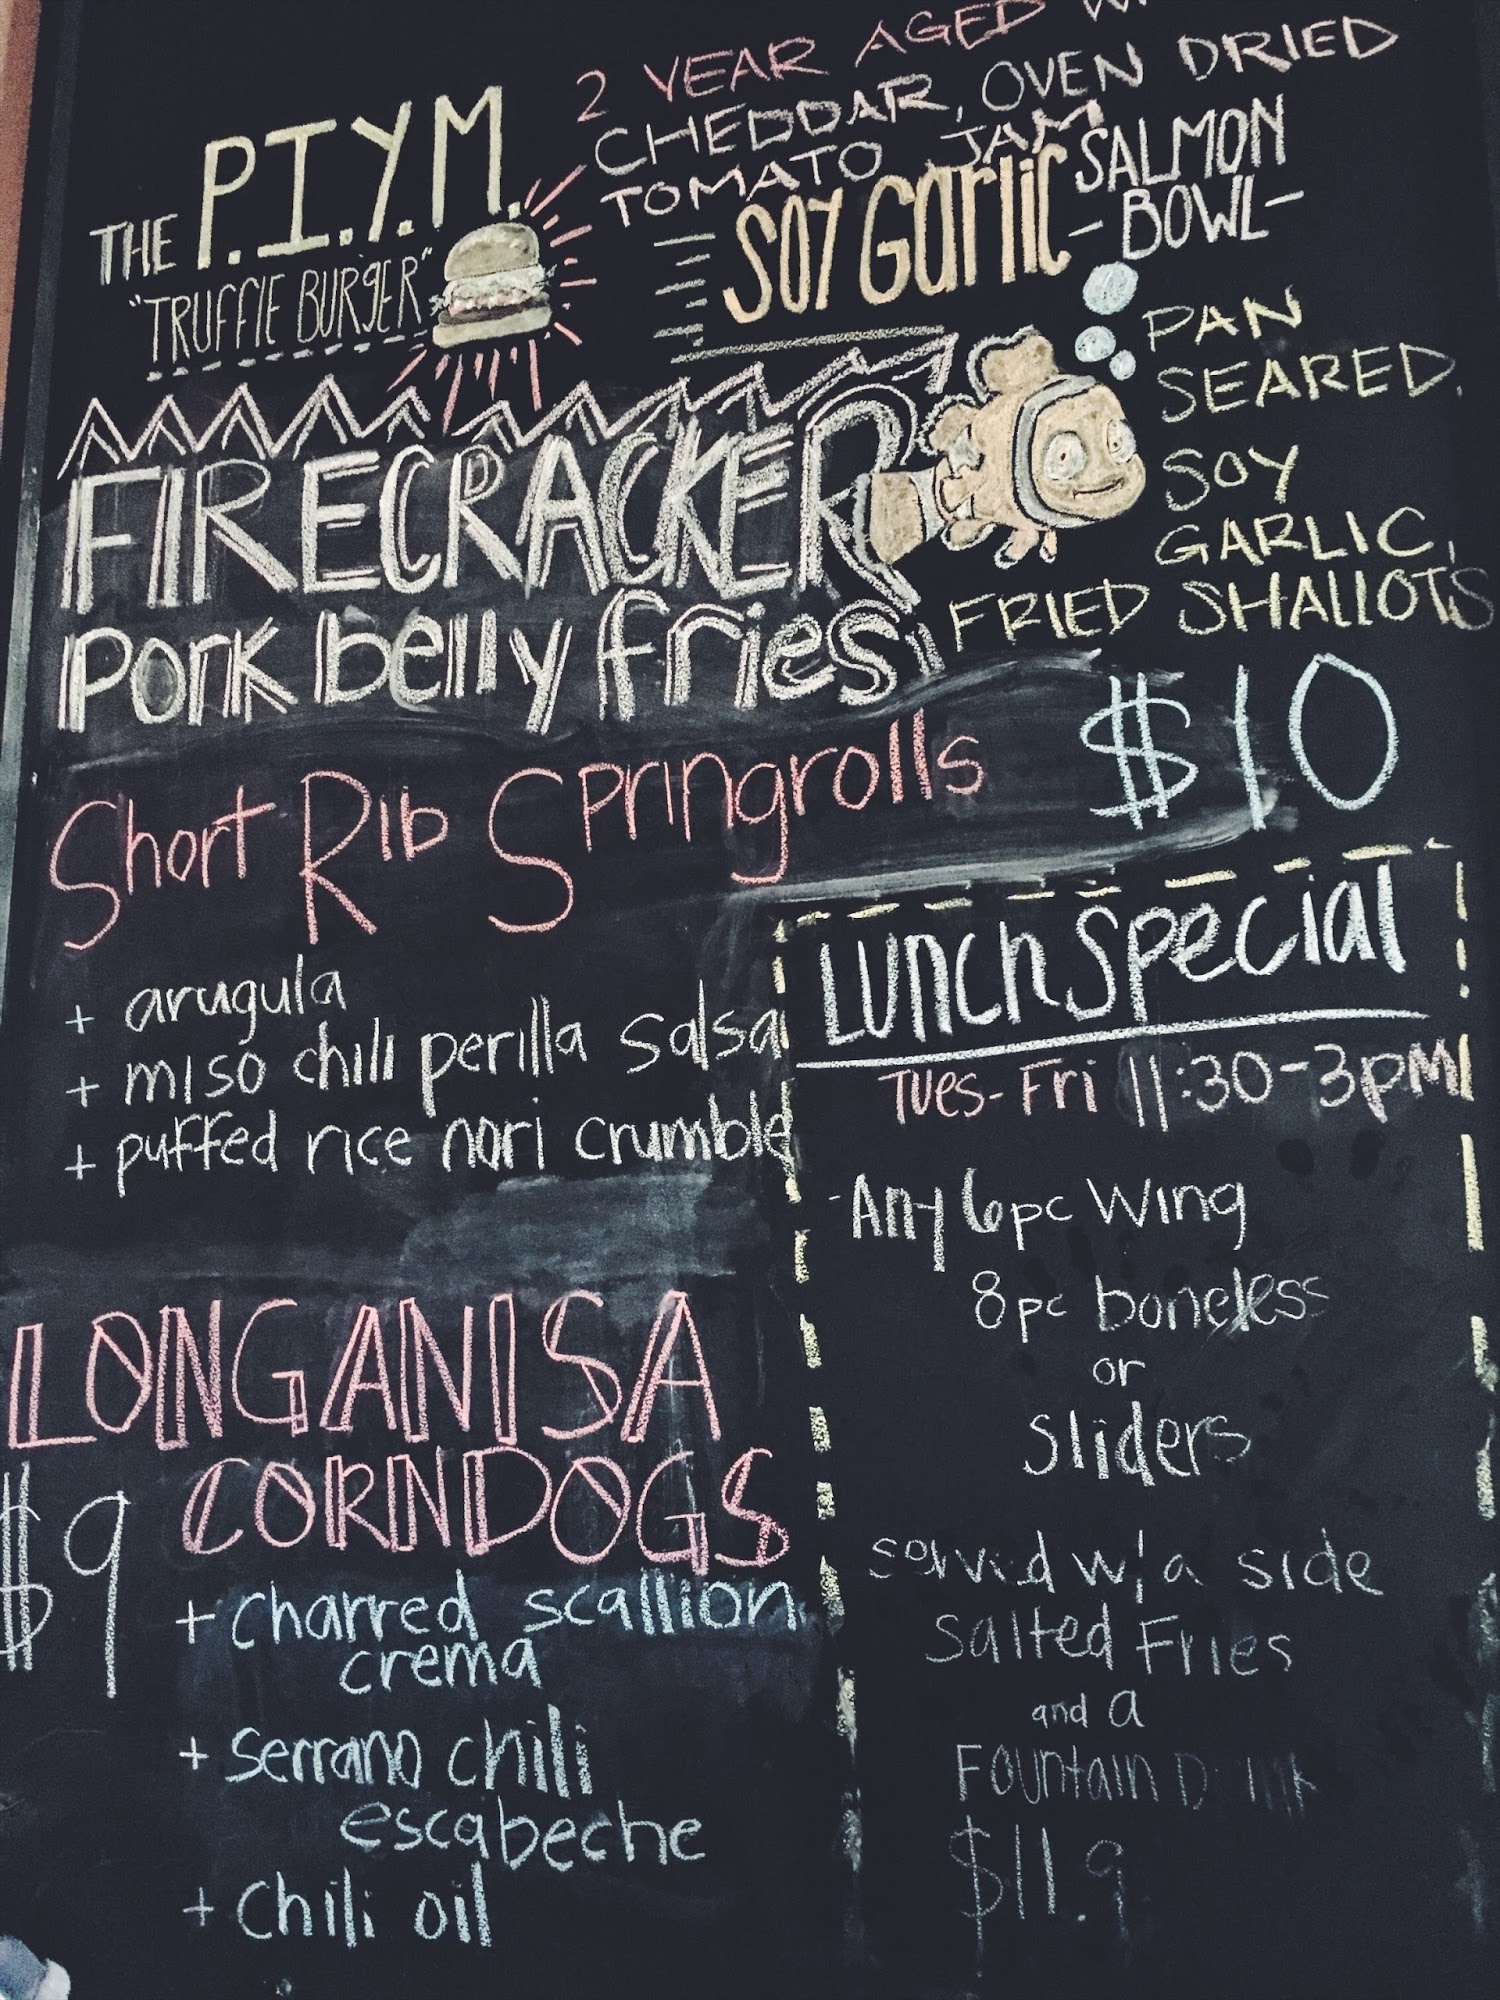 2 YEAR AGED
CHEDDAR, OVEN DRIED
TOMATO JAM
THE P.I.Y.M.
"TRUFFLE BURGER"
SOY GARLIC SALMON
-BOWL-
PAN
SEARED,
SOY
GARLIC,
FRIED SHALLOTS
FIRECRACKER
PORK belly fries
$10
Short Rib Springrolls
+ arugula
+ miso chili perilla salsa
+ puffed rice nori crumble
LONGANISA
CORNDOGS
$9
+ charred scallion
crema
+ serrano chili
escabeche
+ chili oil
Lunch Special
Tues-Fri 11:30-3PM
-Any 6pc Wing
8pc boneless
or
Sliders
served w/ a side
Salted Fries
and a
Fountain
$11.9